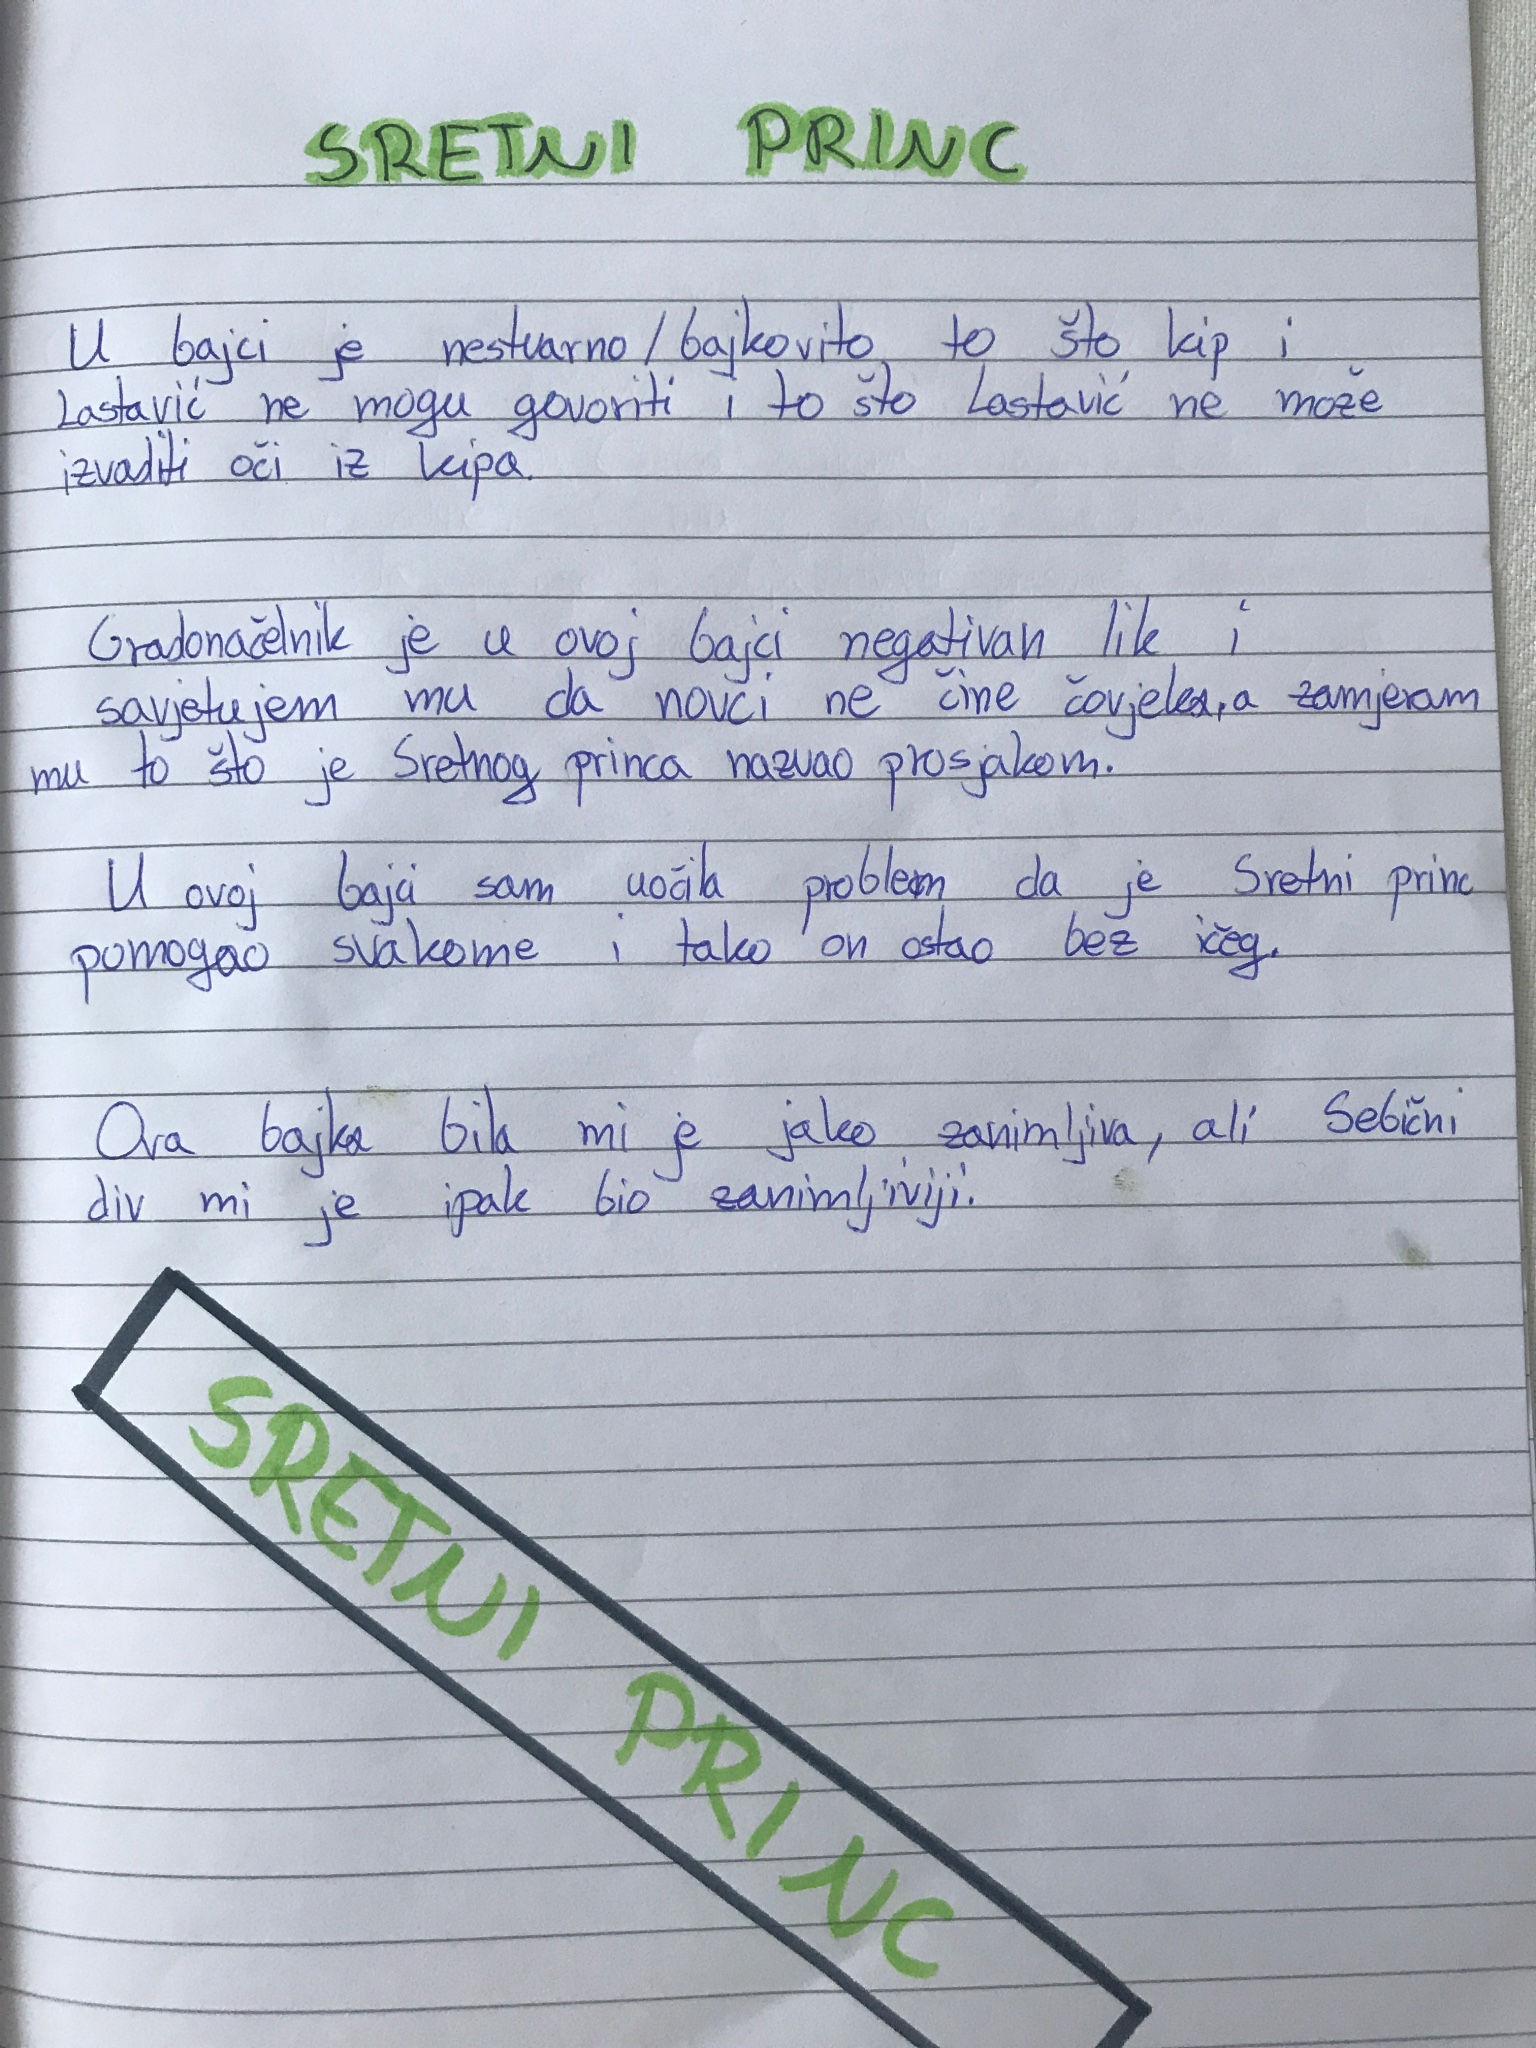 SRETNI PRINC
U bajci je nestvarno/bajkovito to što kip i
Lastavić ne mogu govoriti i to što Lastavić ne može
izvaditi oči iz kipa.
Gradonačelnik je u ovoj bajci negativan lik i
savjetujem mu da novci ne čine čovjeka, a zamjeram
mu to što je Sretnog princa nazvao prosjakom.
U ovoj bajci sam uočila problem da je Sretni princ
pomogao svakome i tako on ostao bez ičeg.
Ova bajka bila mi je jako zanimljiva, ali Sebični
div mi je ipak bio zanimljiviji.
SRETNI PRINC